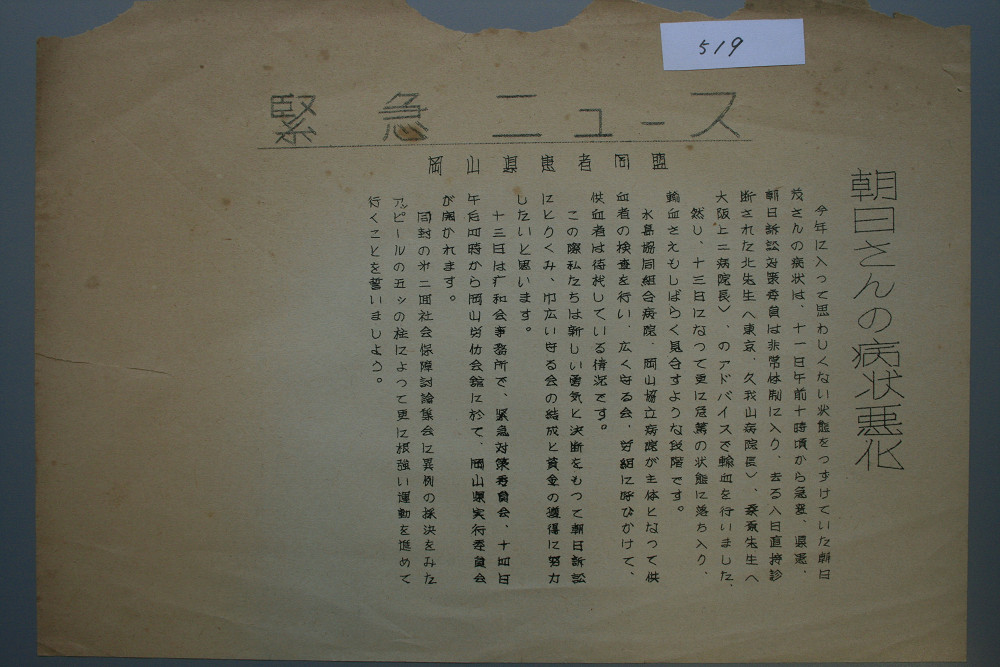 519
緊急ニュース
岡山県患者同盟
朝日さんの病状悪化
今年に入って思わしくない状態をつずけていた朝日
茂さんの病状は、十一日午前十時頃から急変、県患、
朝日訴訟対策委員は非常体制に入り、去る八日直接診
断された北先生へ東京、久我山病院長〉、桑原先生へ
大阪上二病院長〉、のアドバイスで輸血を行いました、
然し、十三日になつて更に危篤の状態に落ち入り、
輸血さえもしばらく見合すような段階です。
水島協同組合病院、岡山協立病院が主体となつて供
血者の検査を行い、広く守る会、労組に呼びかけて、
供血者は待机している情況です。
この際私たちは新しい勇気と決断をもつて朝日訴訟
にとりくみ、巾広い守る会の結成と資金の獲得に努力
したいと思います。
十三日は广和会事務所で、緊急対策委員会、十四日
午后四時から岡山労仂会館に於て、岡山県実行委員会
が開かれます。
同封の才二回社会保障討論集会に異例の採決をみた
アッピールの五ッの柱によって更に根強い運動を進めて
行くことを誓いましよう。